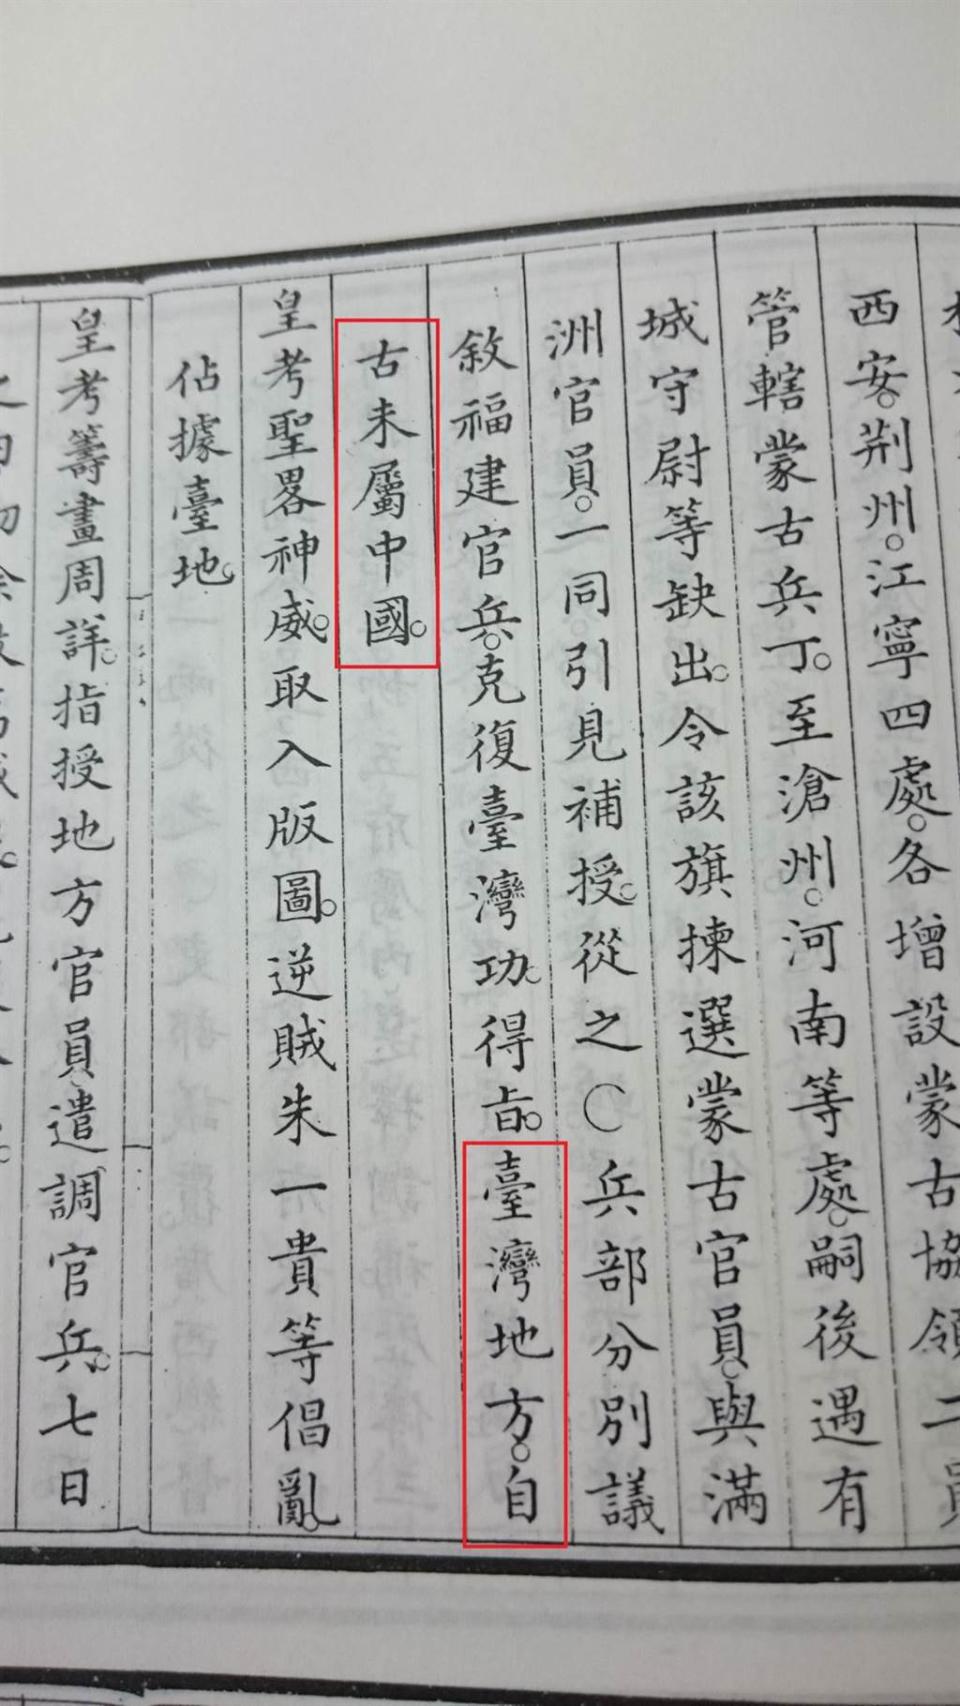 西安。荆州。江寧四處。各增設蒙古協領二員
管轄蒙古兵丁。至滄州。河南等處。嗣後遇有
城守尉等缺出。令該旗揀選蒙古官員。與滿
洲官員。一同引見補授。從之○兵部分別議
敘福建官兵。克復臺灣功。得旨。臺灣地方。自
古未屬中國。
皇考聖畧神威。取入版圖。逆賊朱一貴等倡亂。
佔據臺地。
皇考籌畫周詳。指授地方官員。遣調官兵。七日